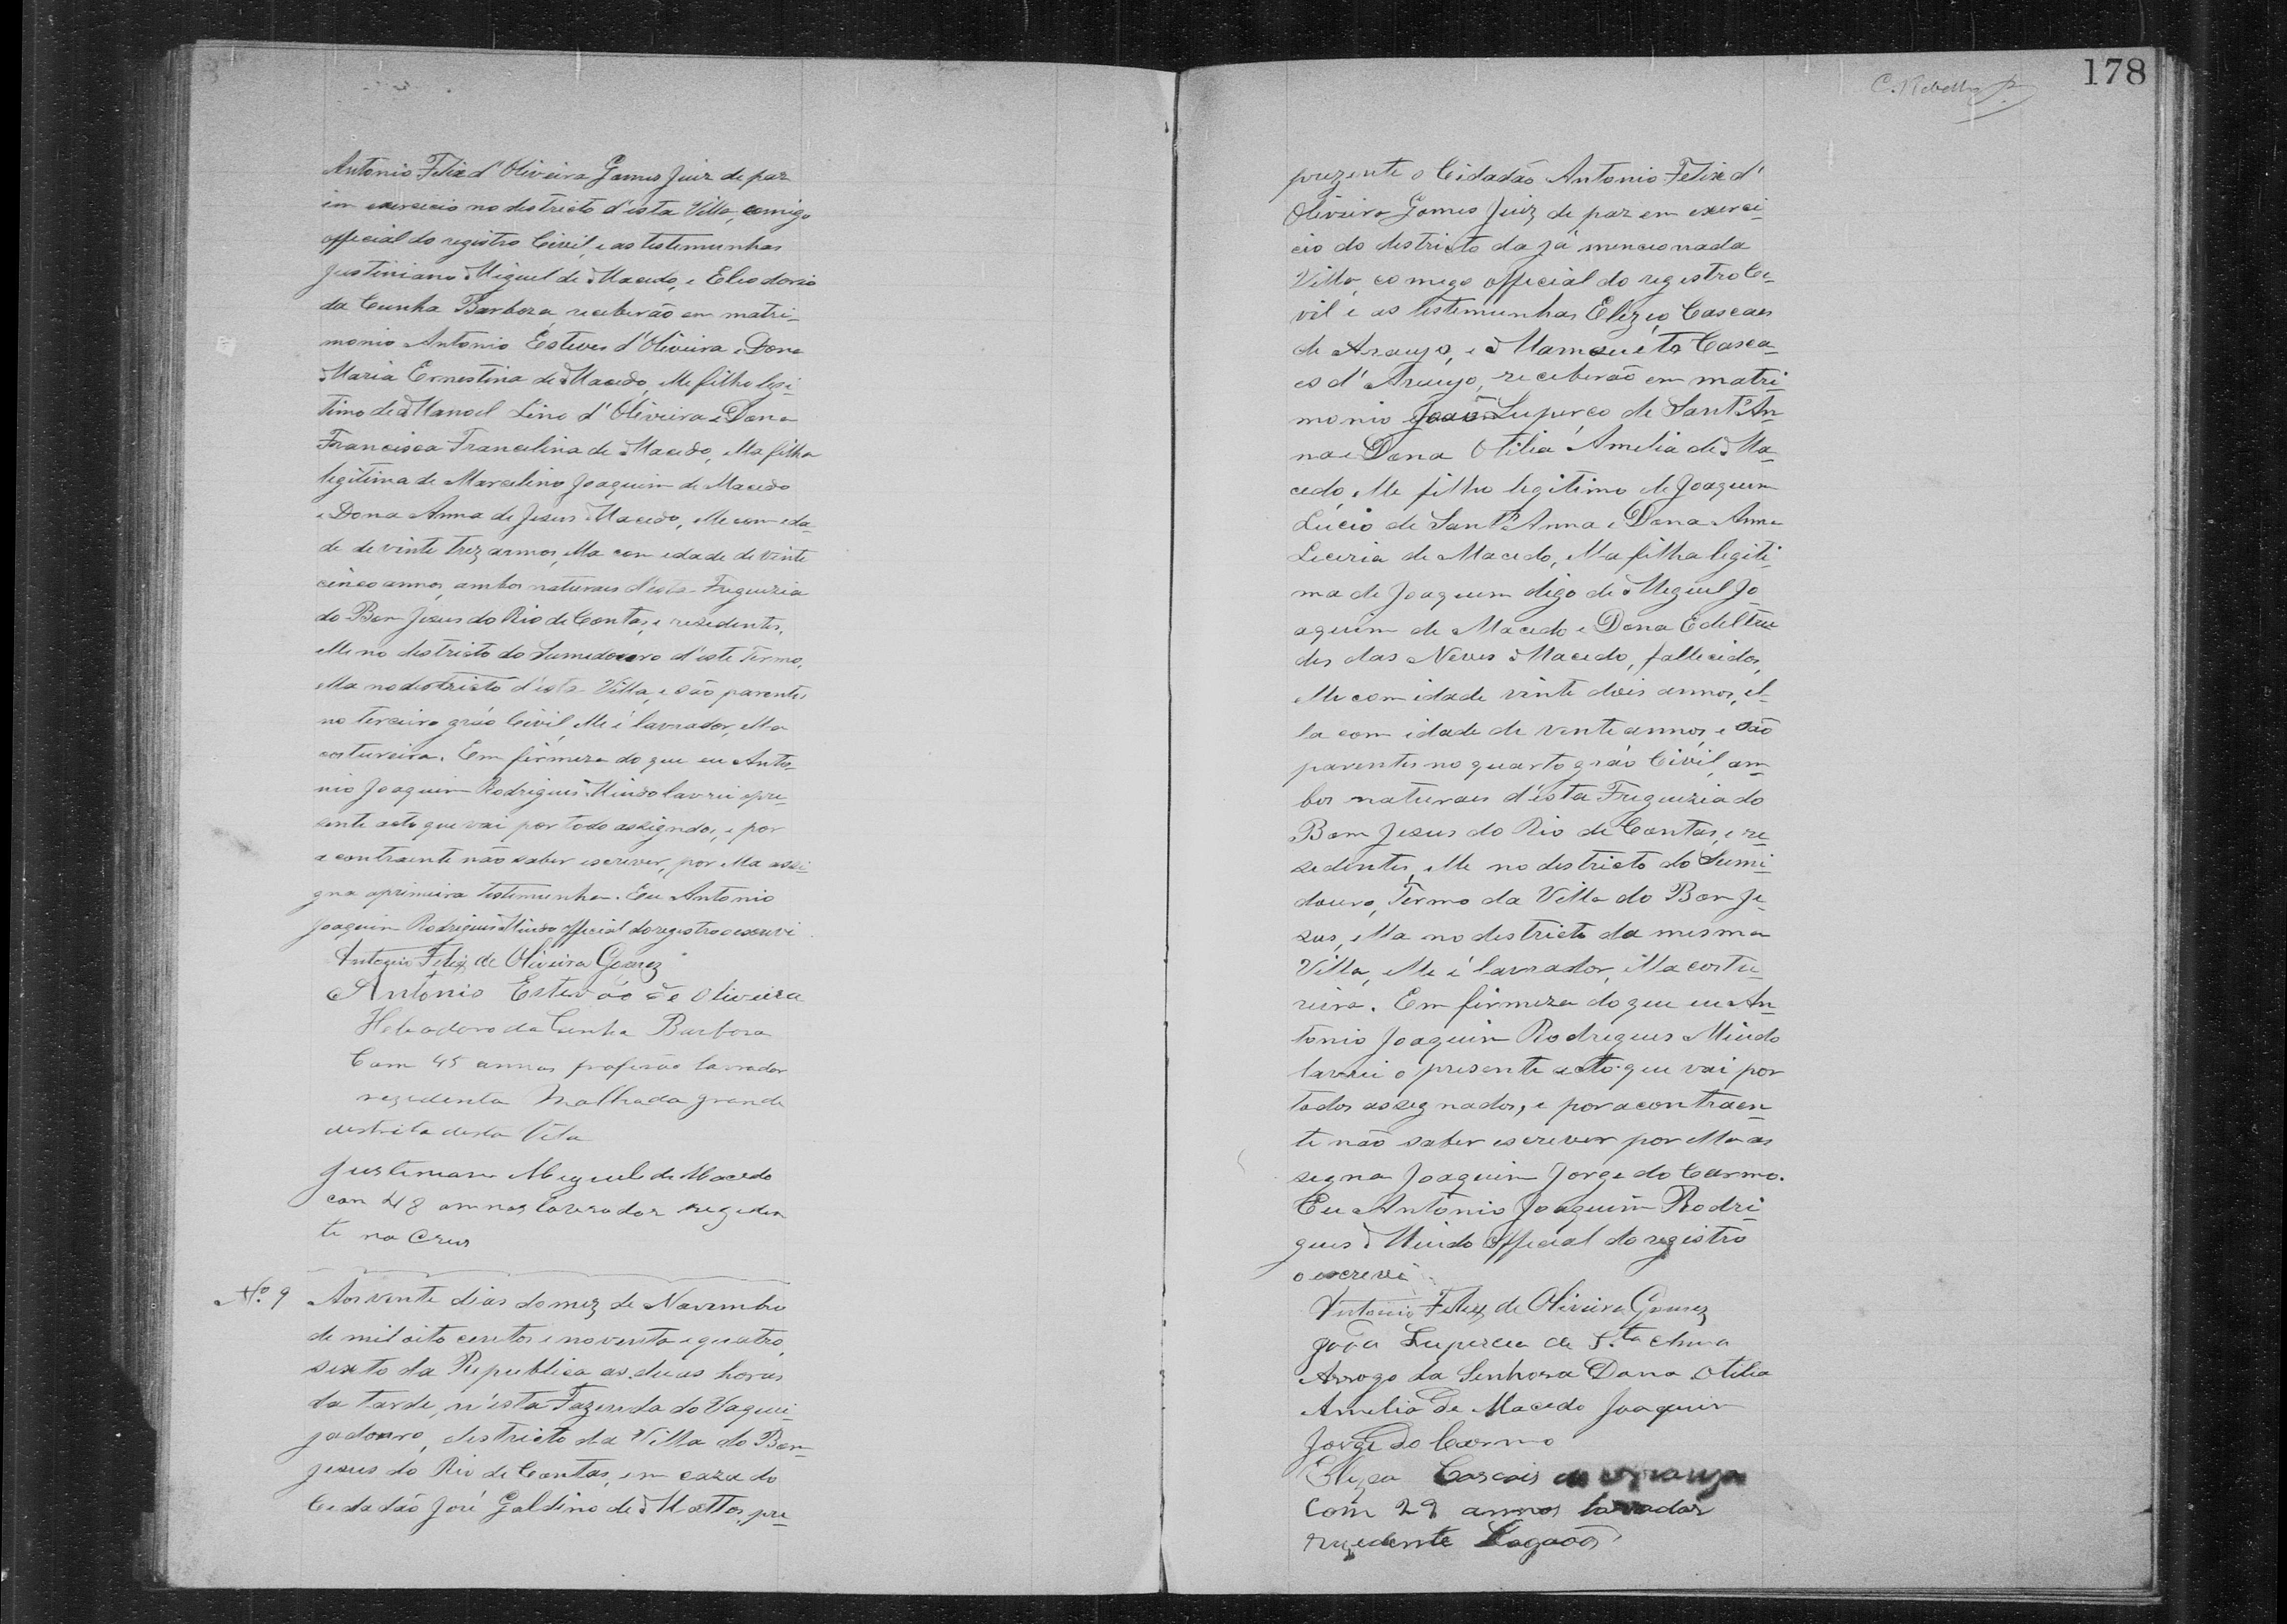 Antonio Felix d'Oliveira Gomes Juiz de paz
em exersecio no destricto d'esta Villa, comigo
official do registro Civil, e as testemunhas
Justiniano Miguel de Macedo, e Eleodorio
da Cunha Barboza, receberão em matri-
monio Antonio Esteves d'Oliveira e Dona
Maria Ernestina de Macedo, elle filho legi-
timo de Manoel Lino d'Oliveira e Dona
Francisca Francelina de Macedo, ella filha
legitima de Marcelino Joaquim de Macedo
e Dona Anna de Jesus Macedo, elle com eda-
de de vinte trez annos, ella com edade de vinte
cinco annos, ambos naturaes d'esta Freguezia
do Bom Jesus do Rio de Contas, e rezedentes,
elle no destricto do Sumedouro d'este Termo,
ella no destricto d'esta Villa, e são parentes
no terceiro gráo Civil, elle é lavrador, ella
costureira. Em firmeza do que eu Anto-
nio Joaquim Rodrigues Mindo lavrei o pre-
sente acto que vai por todo assignados, e por
a contraente não saber escrever, por ella assi-
gna a primeira testemunha. Eu Antonio
Joaquim Rodrigues Mindo official do registro o escrevi
Antonio Felix de Oliveira Gomez
Antonio Estevão de Oliveira
Heleodoro da Cunha Barbosa
Com 45 annos profisão lavrador
rezedenta Malhada grande
destrito desta Vila
Justiniano Miguel de Macedo
con 48 annos lavrador rezeden
te na Crus
No. 9 Aos vente dias do mez de Novembro
de mil oito centos e noventa e quatro,
sexto da Republica as duas horas
da tarde, n'esta Fazenda do Vaquei-
jadouro, destricto da Villa do Bom
Jesus do Rio de Contas, em caza do
Cedadão José Galdino de Mattos, pre-
C. Rebello
178
prezente o Cidadão Antonio Felix d'
Oliveira Gomes Juiz de paz em exerci-
cio do destricto da já mencionada
Villa, comego official do registro Ce-
vil e as testemunhas Elezeo Cascaes
de Araujo, e Mansueto Casca-
es d'Araujo, receberão em matri-
monio João Luperço de Sant'An-
na e Dona Otilia Amelia de Ma-
cedo, elle filho legitimo de Joaquim
Lúcio de Sant'Anna e Dona Anna
Leceria de Macedo, ella filha legiti-
ma de Joaquim digo de Meguel Jo
aquim de Macedo e Dona Edeltru
des das Neves Macedo, fallecidos,
elle com idade vinte dois annos, el-
la com idade de vente annos, e são
parentes no quarto gráo Civil, am-
bos naturaes d'esta Freguezia do
Bom Jesus do Rio de Contas, e re-
sedentes, elle no destricto do Sumi-
douro, Termo da Villa do Bom Je-
sus, ella no destricto da mesma
Villa, elle é lavrador, ella costu-
reira. Em firmeza do que eu An-
tonio Joaquim Rodrigues Mindo
lavrei o presente acto que vai por
todos assegnados, e por a contraen-
te não saber escrever por ella as
segna Joaquim Jorge do Carmo.
Eu Antonio Joaquim Rodri-
gues Mindo Official do registro
o escrevi
Antonio Felix de Oliveira Gomez
João Luperceu de S.ta Anna
Arrogo da Senhora Dona Otilia
Amelia de Macedo Joaquim
Jorge do Carmo
Elizeo Cascais de Araujo
Com 29 annos lavrador
rezedente Lagoão